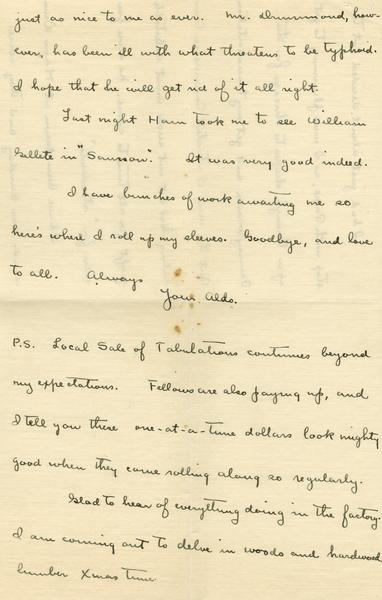 just as nice to me as ever. Mr. Drummond, how-
ever, has been ill with what threatens to be typhoid.
I hope that he will get rid of it all right.
Last night Ham took me to see William
Gillete in "Samson". It was very good indeed.
I have bunches of work awaiting me so
here's where I roll up my sleeves. Goodbye, and love
to all. Always
Your Aldo.
P.S. Local Sale of Tabulations continues beyond
my expectations. Fellows are also paying up, and
I tell you these one-at-a-time dollars look mighty
good when they come rolling along so regularly.
Glad to hear of everything doing in the factory.
I am coming out to delve in woods and hardwood
lumber Xmas time